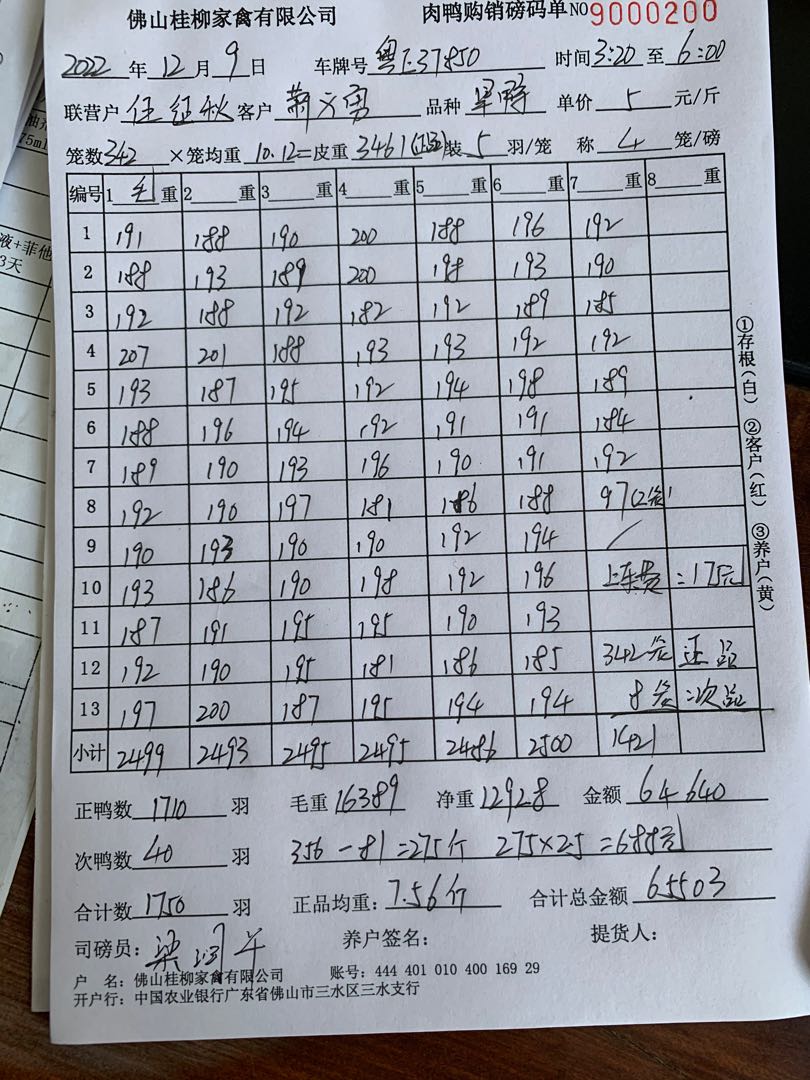 佛山桂柳家禽有限公司 肉鸭购销磅码单 NO 9000200
2022 年 12 月 9 日 车牌号 粤E37850 时间 3:20 至 6:00
联营户 任征秋 客户 品种 单价 5 元/斤
笼数 342 ×笼均重 10.12 = 皮重 3461 (正品) 装 5 羽/笼 称 4 笼/磅
编号 1 毛 重 2 重 3 重 4 重 5 重 6 重 7 重 8 重
1 191 188 190 200 188 196 192
2 188 193 189 200 198 193 190
3 192 188 192 182 192 189 185
4 207 201 188 193 193 192 192
5 193 187 195 192 194 198 189
6 188 196 194 192 191 191 184
7 189 190 193 196 190 191 192
8 192 190 197 181 186 188 97(2笼)
9 190 193 190 190 192 194 /
10 193 186 190 198 192 196 上车费 =175元
11 187 191 195 195 190 193
12 192 190 195 181 186 185 342笼 正品
13 197 200 187 195 194 194 8笼 =次品
小计 2499 2493 2495 2495 2486 2500 1421
正鸭数 1710 羽 毛重 16389 净重 12928 金额 64640
次鸭数 40 羽 356-81=275斤 275×25=688元
合计数 1750 羽 正品均重: 7.56斤 合计总金额 65503
司磅员: 梁 养户签名: 提货人:
户 名: 佛山桂柳家禽有限公司 账号: 444 401 010 400 169 29
开户行: 中国农业银行广东省佛山市三水区三水支行
①存根(白) ②客户(红) ③养户(黄)
75ml
液+菲他
3天